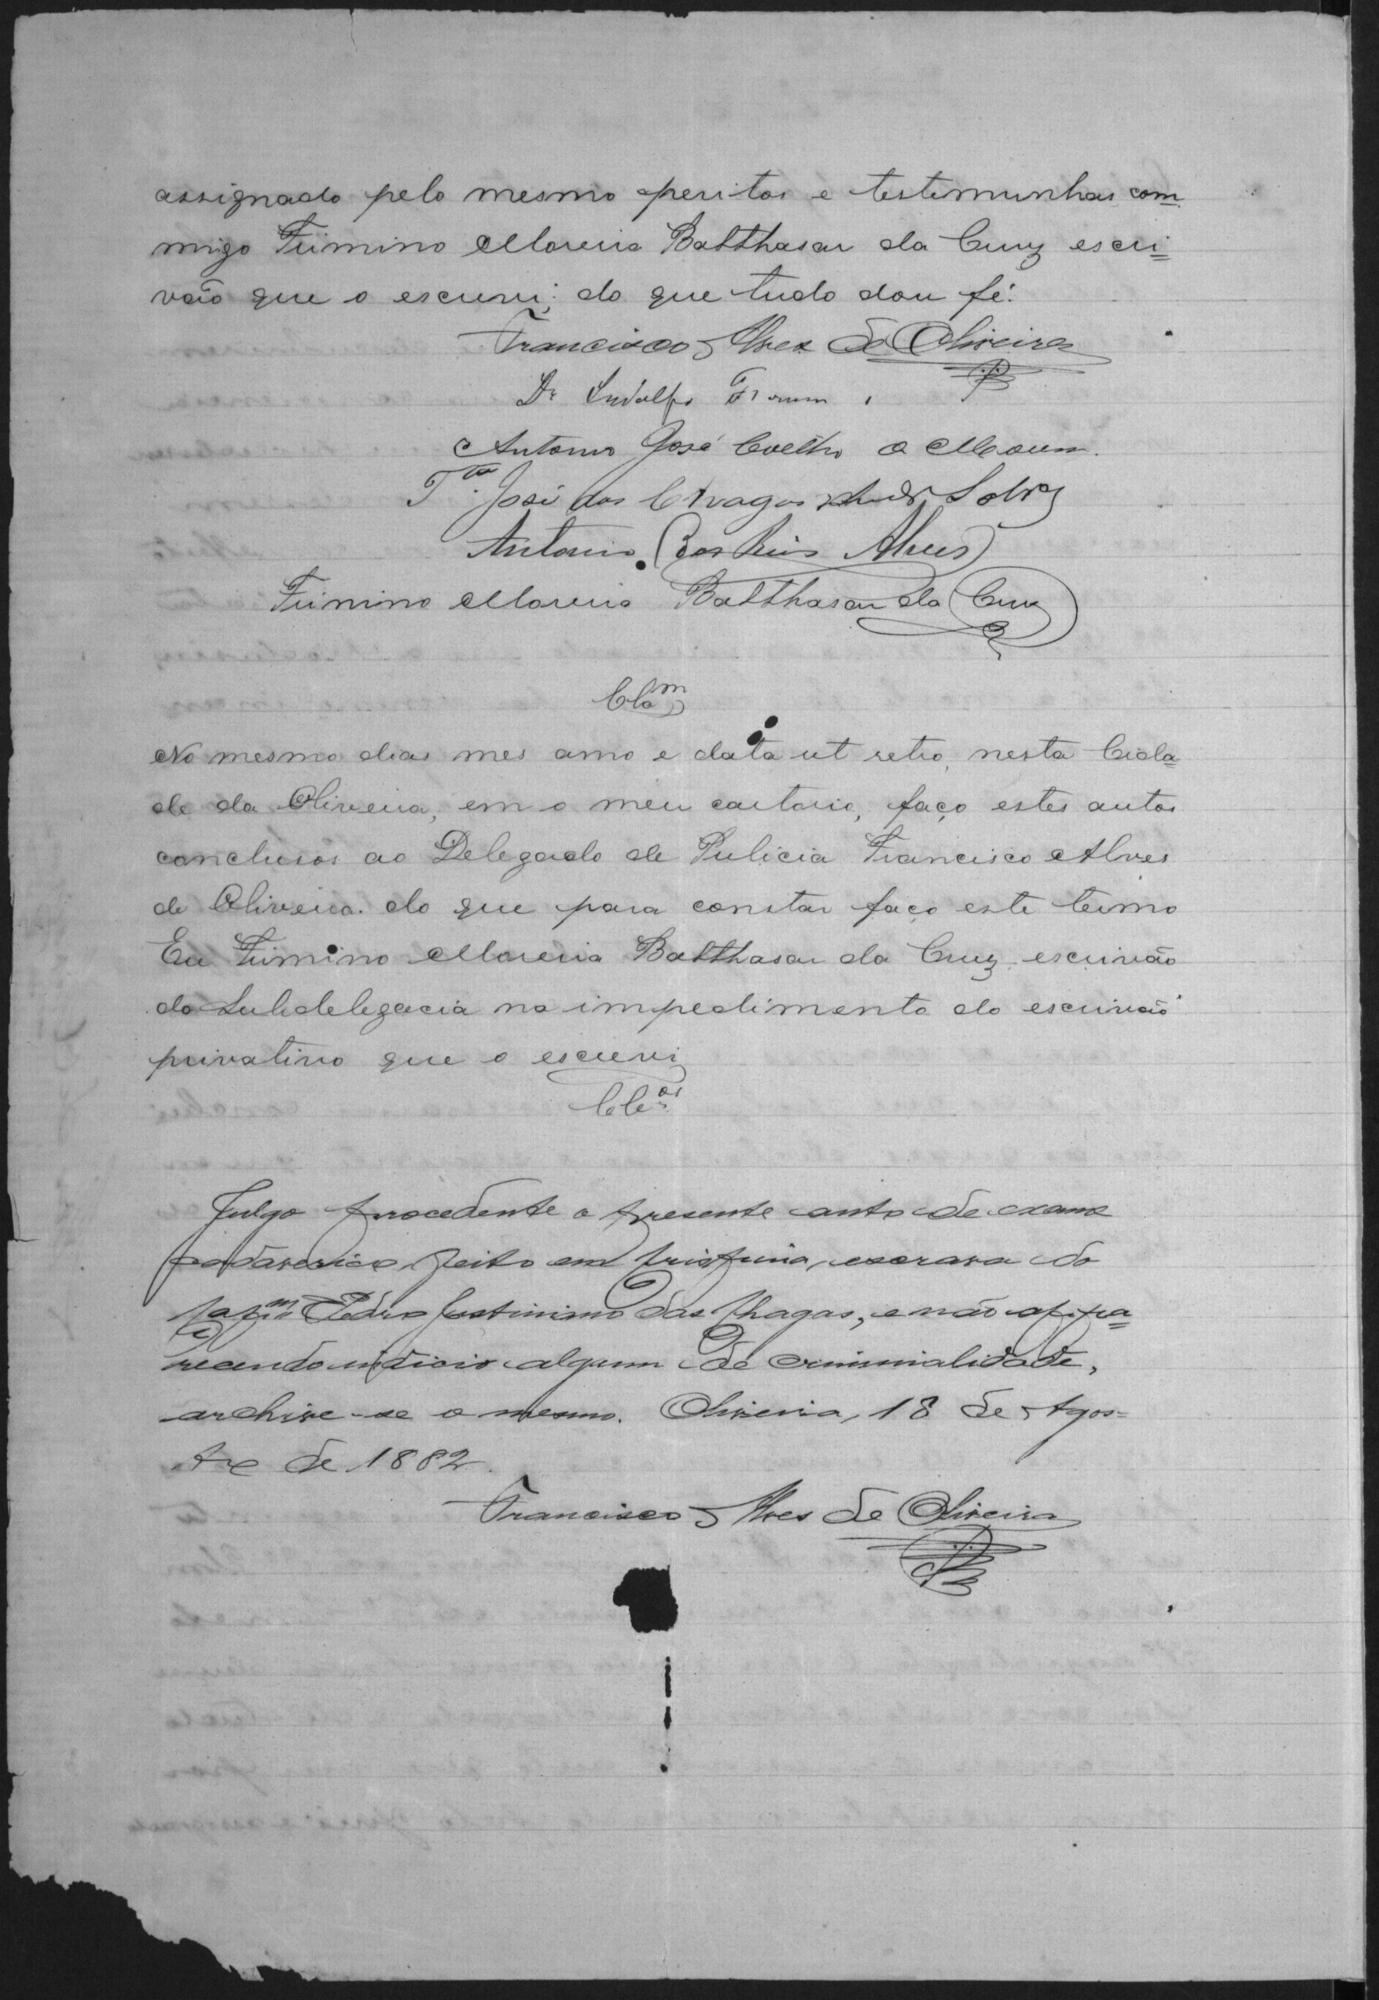 assignado pelo mesmo peritos e testimunhas com
migo Firmino Moreira Balthasar da Cruz escri=
vaõ que o escrevi; do que tudo dou fé.
Francisco Alves de Oliveira
Dr
Antonio José Coelho e Moura.
Tas José das Chagas
Antonio Alves
Firmino Moreira Balthasar da Cruz
Clam
No mesmo dias mes anno e data ut retro, nesta Cida=
de da Oliveira, em o meu cartorio, faço estes autos
conclusos ao Delegado de Pulicia Francisco Alves
de Oliveira. do que para constar faço este termo
Eu Firmino Moreira Balthasar da Cruz escrivaõ
da Subdelegacia no impedimento do escrivaõ
privativo que o escrevi
Clos
Julgo procedente o presente auto de exame
cadaverico feito em escrava do
Capm Pedro Justiniano das Chagas, e não appa=
recendo indicio algum de criminalidade,
archive-se o mesmo. Oliveira, 18 de Agos=
to de 1882.
Francisco Alves de Oliveira